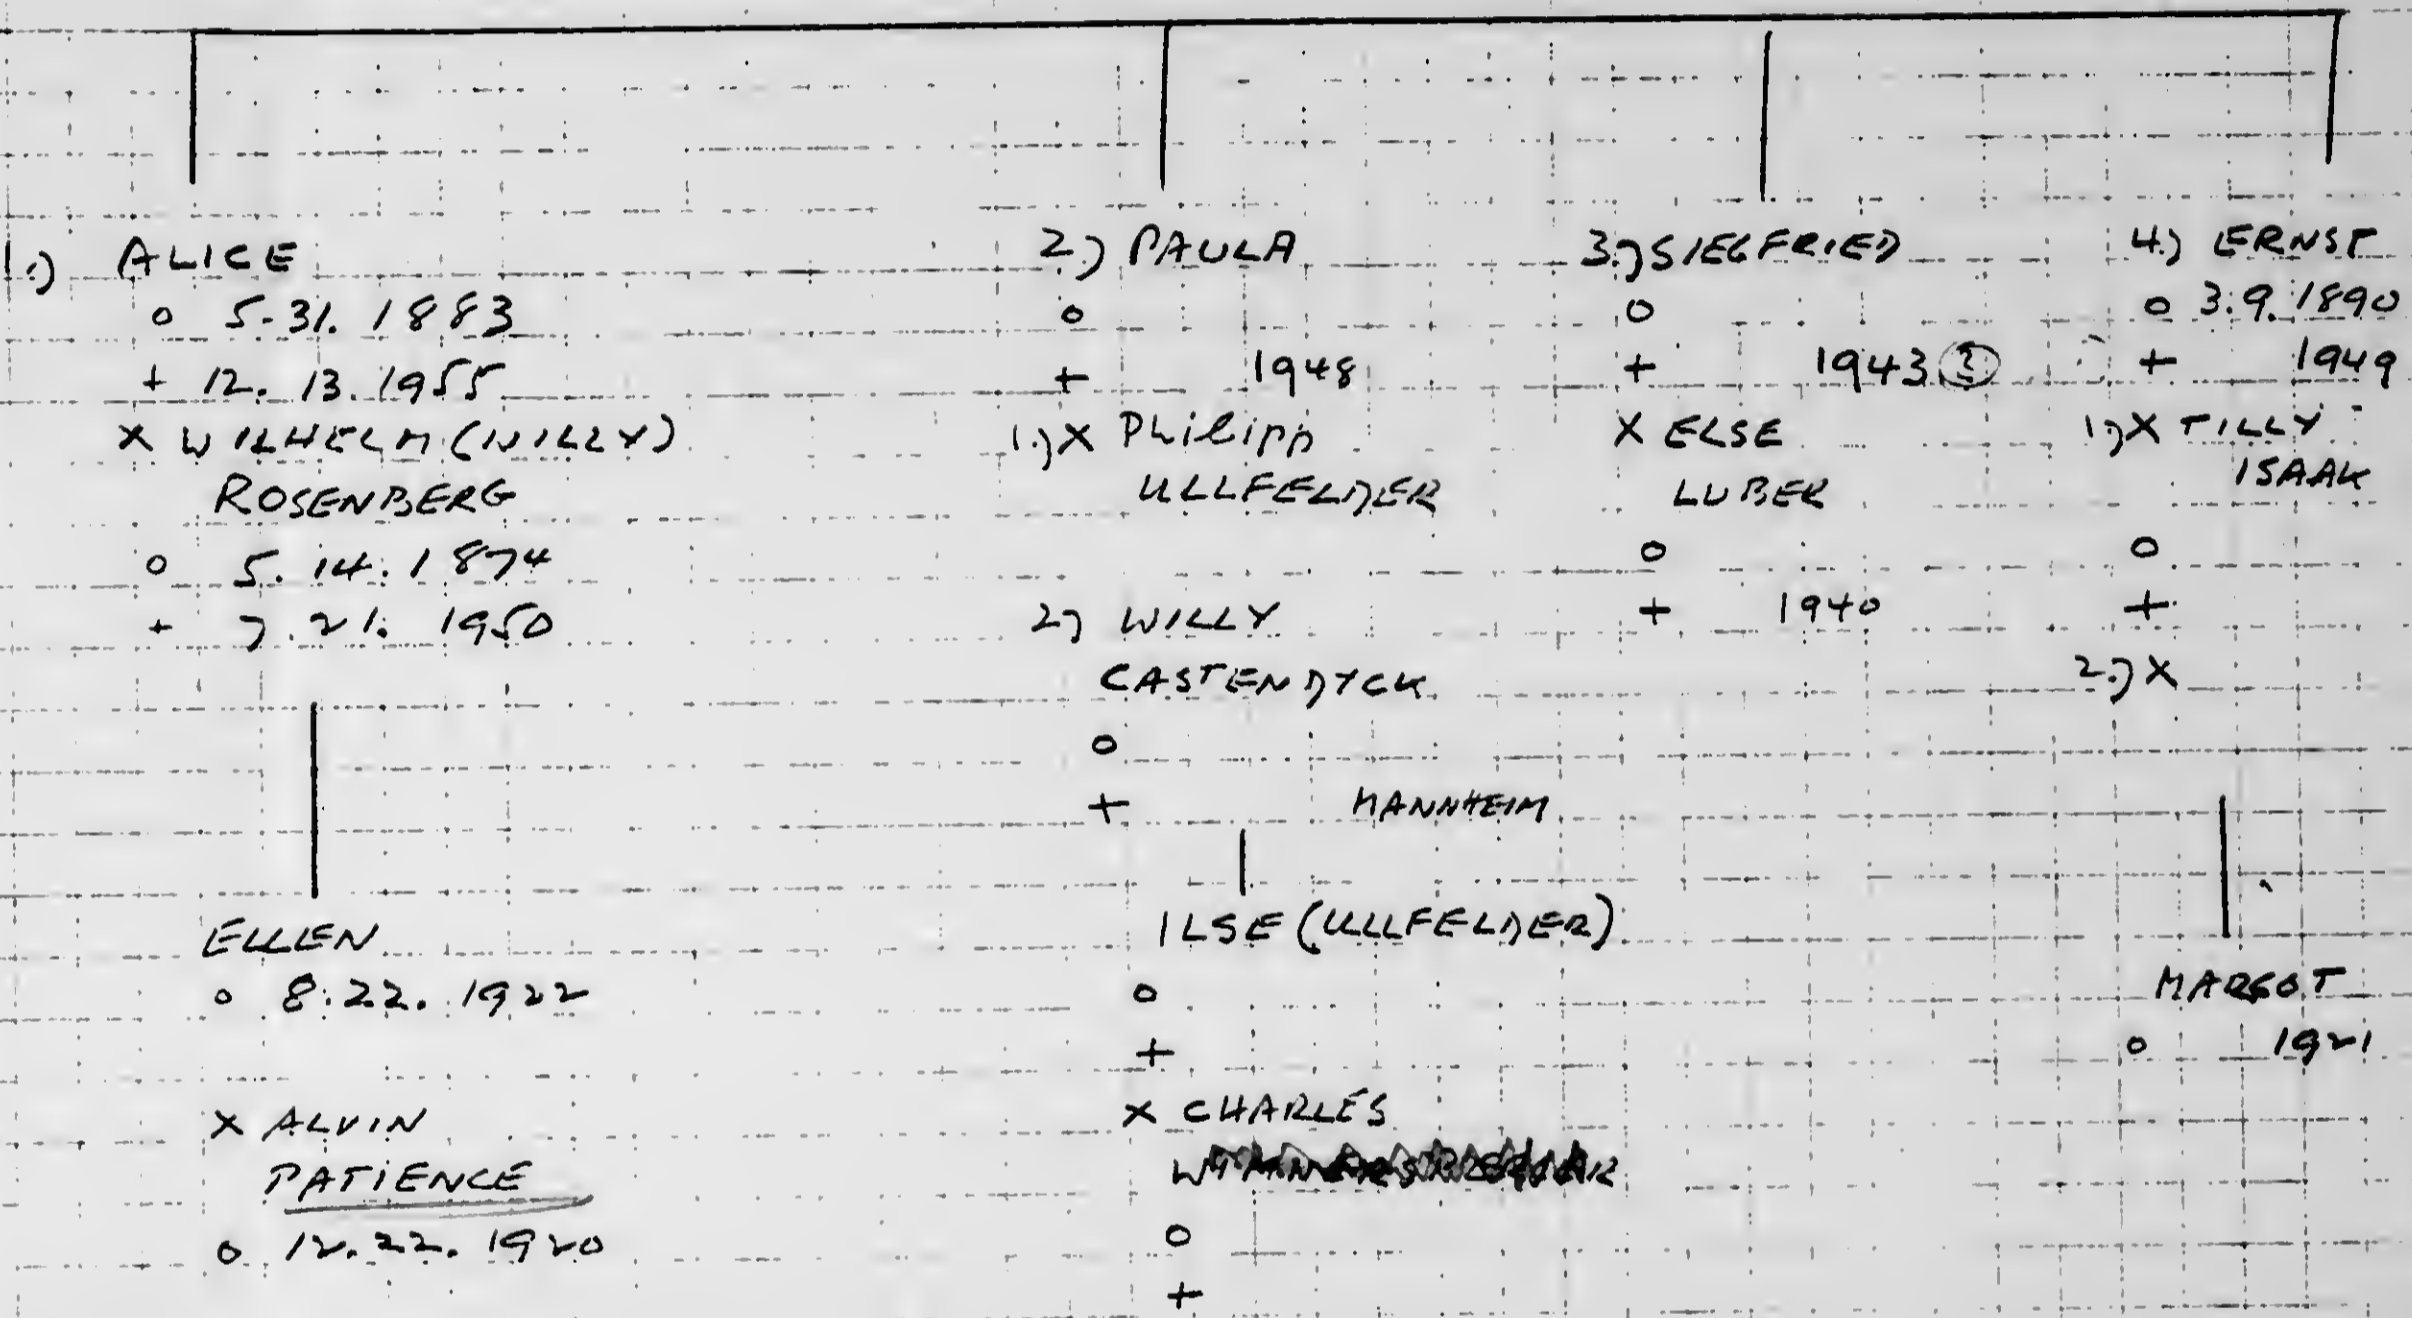 1.) ALICE
o 5.31.1883
+ 12.13.1955
X WILHELM (WILLY)
ROSENBERG
o 5.14.1874
+ 7.21.1950
ELLEN
o 8.22.1922
X ALVIN
PATIENCE
o 12.22.1920
2.) PAULA
o
+ 1948
1.) X Philipp
ULLFELDER
2) WILLY
CASTENDYCK
o
+ MANNHEIM
ILSE (ULLFELDER)
o
+
X CHARLES
o
+
3.) SIEGFRIED
o
+ 1943 ?
X ELSE
LUBER
o
+ 1940
4.) ERNST
o 3.9.1890
+ 1949
1.) X TILLY
ISAAK
o
+
2.) X
MARGOT
o 1921